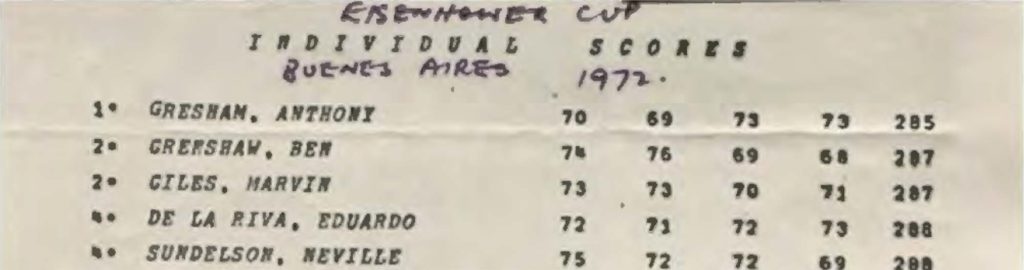 EISENHOWER CUP
INDIVIDUAL SCORES
BUENES AIRES 1972.
1º GRESHAM, ANTHONY 70 69 73 73 285
2º GRENSHAW, BEN 74 76 69 68 287
2º GILES, MARVIN 73 73 70 71 287
4º DE LA RIVA, EDUARDO 72 71 72 73 288
4º SUNDELSON, NEVILLE 75 72 72 69 288